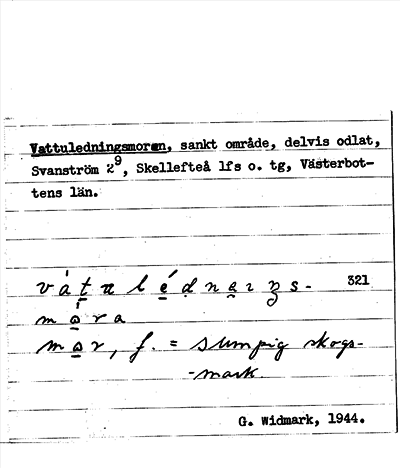 Vattuledningsmoran, sankt område, delvis odlat,
Svanström 2⁹, Skellefteå lfs o. tg, Västerbot-
tens län.
321
mor, f. = sumpig skogs-
-mark
G. Widmark, 1944.